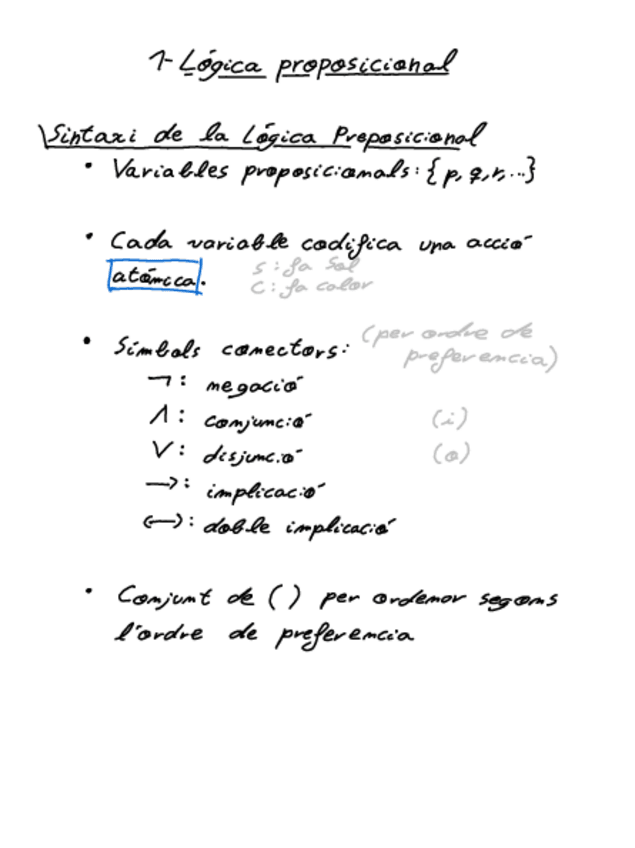 1- Lógica proposicional
Sintaxi de la Lógica Proposicional
• Variables proposicionals: {p, q, r, ...}
• Cada variable codifica una acció
atómica.
s: fa Sol
C: fa calor
• Símbols conectors: (per ordre de
preferencia)
¬: negació
∧: conjunció (i)
∨: disjunció (o)
→: implicació
↔: doble implicació
• Conjunt de () per ordenar segons
l'ordre de preferencia